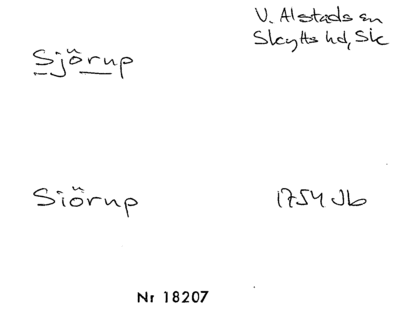 Sjörup
V. Alstads sn
Skytts hd, Sk
Siörup
1754 Jb
Nr 18207